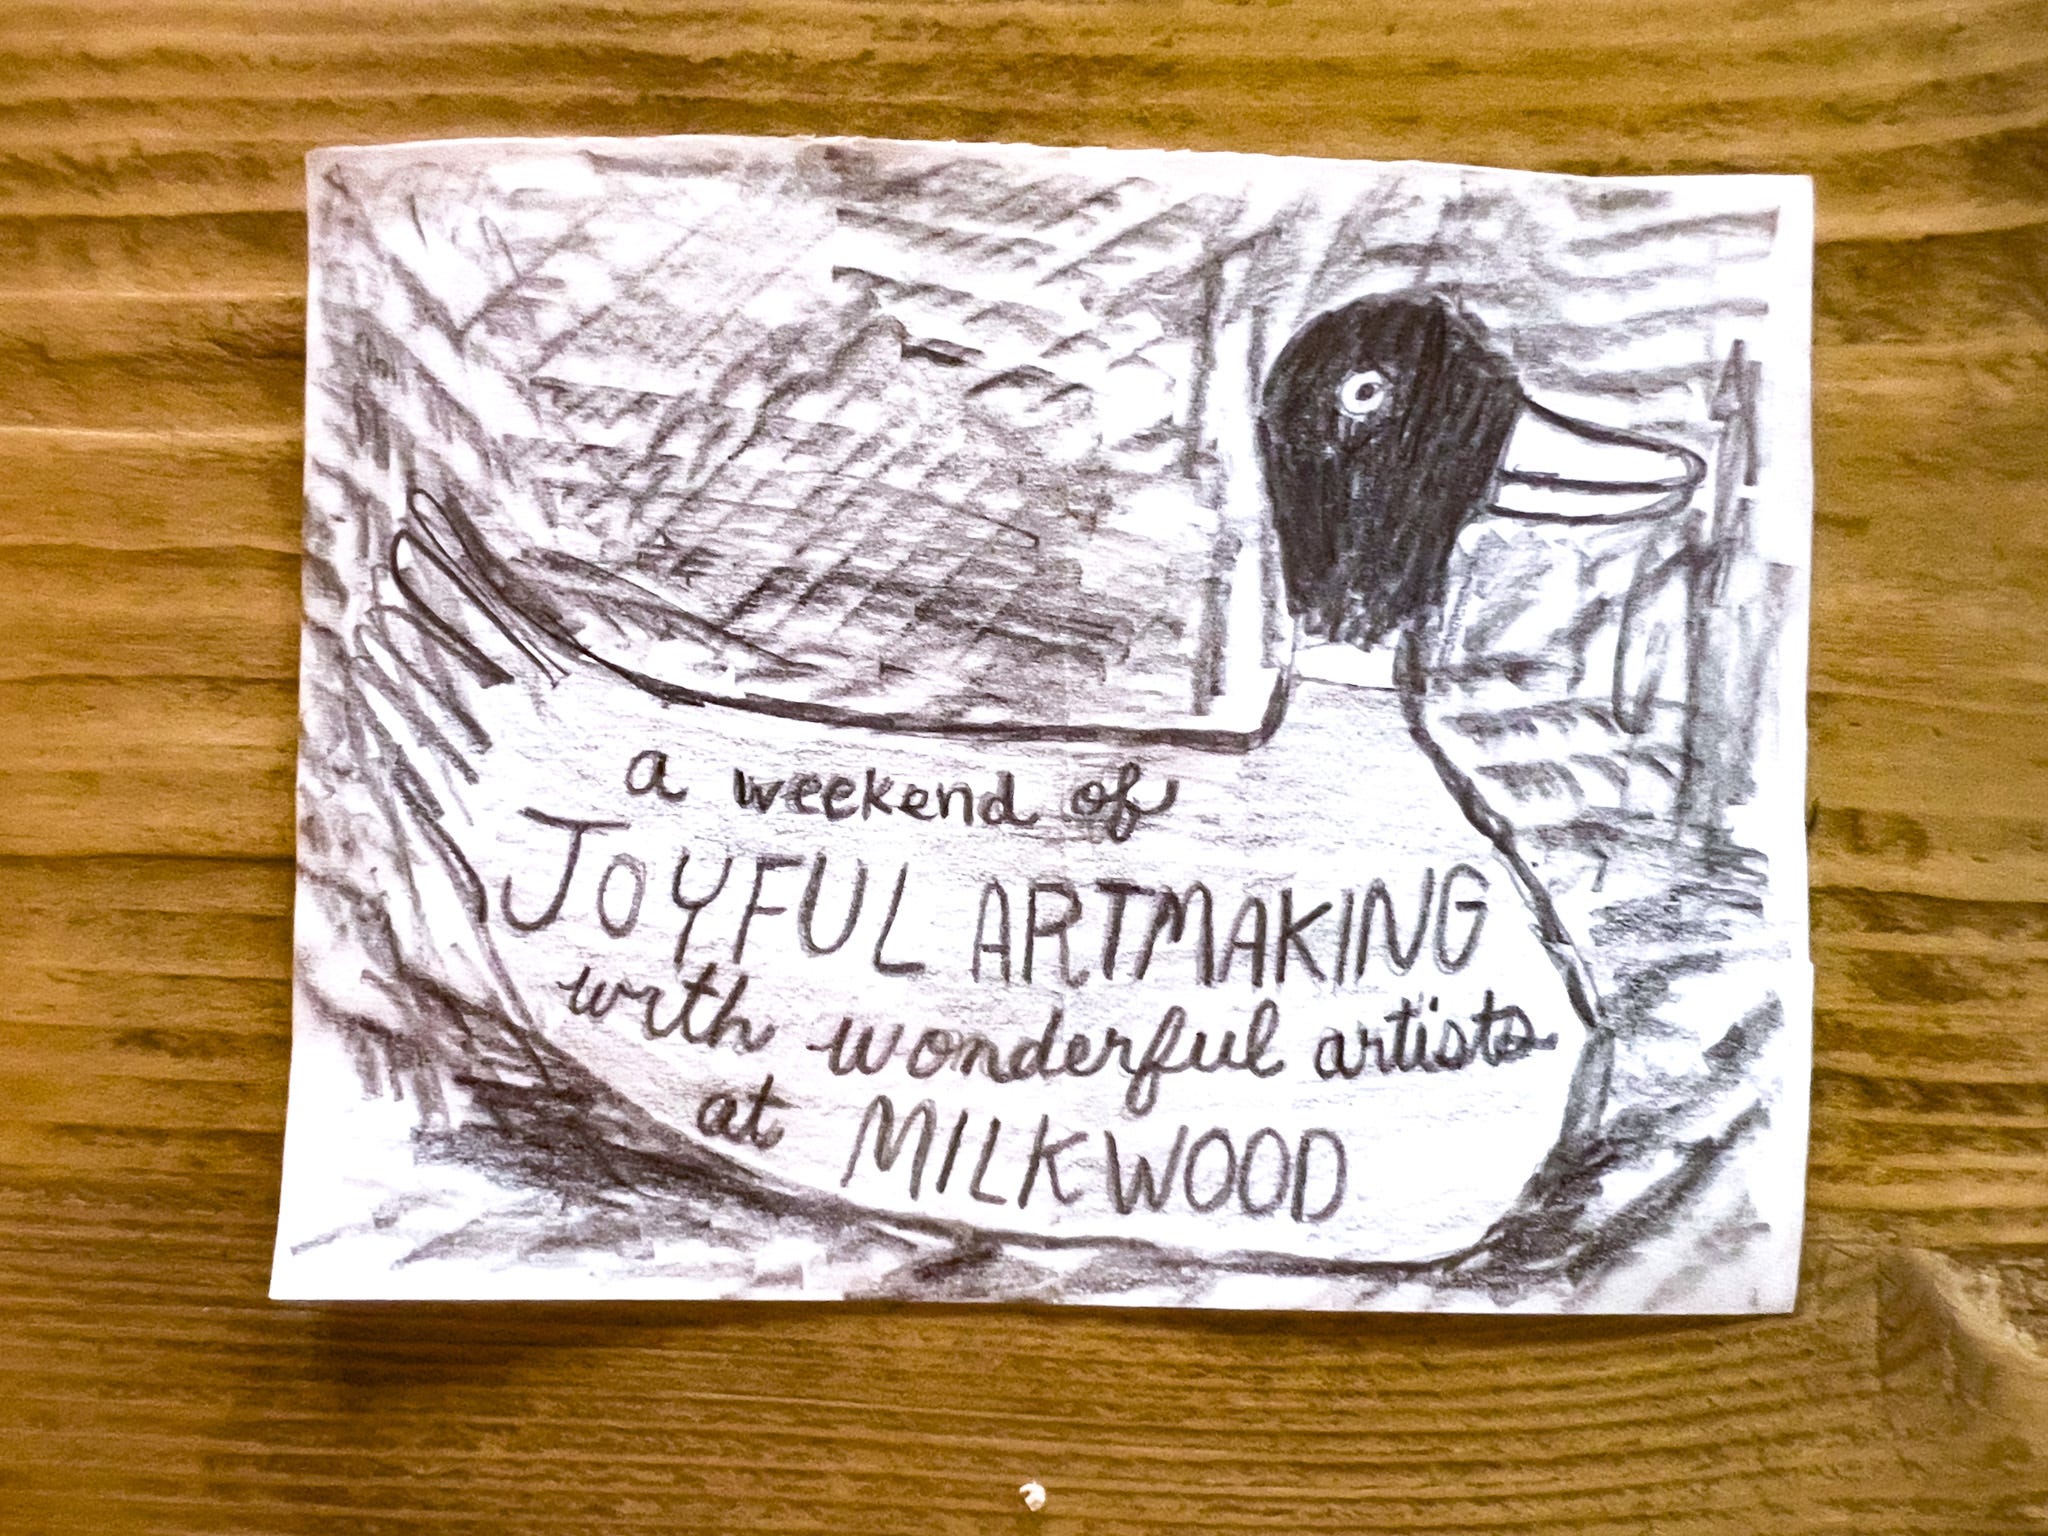 a weekend of
JOYFUL ARTMAKING
with wonderful artists
at MILKWOOD